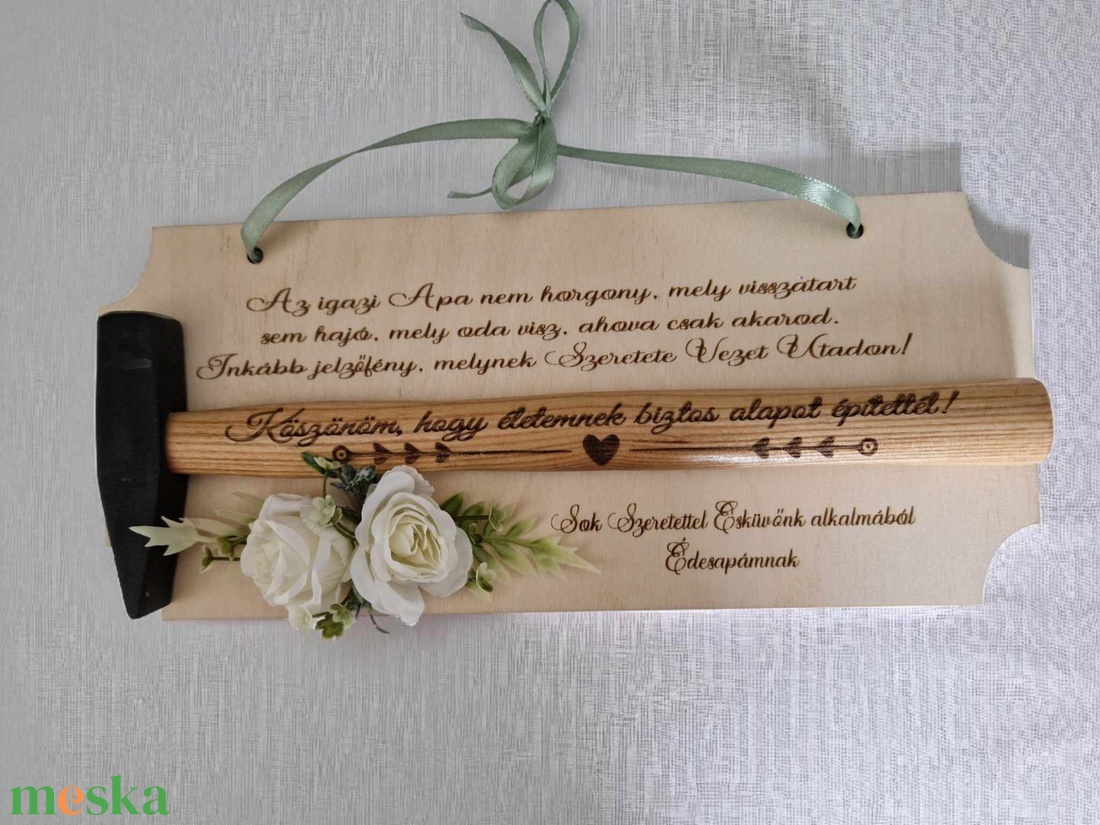 Az igazi Apa nem horgony, mely visszatart
sem hajó, mely oda visz, ahova csak akarod.
Inkább jelzőfény, melynek Szeretete Vezet Utadon!
Köszönöm, hogy életemnek biztos alapot építettél!
Sok Szeretettel Esküvőnk alkalmából
Édesapámnak
meska